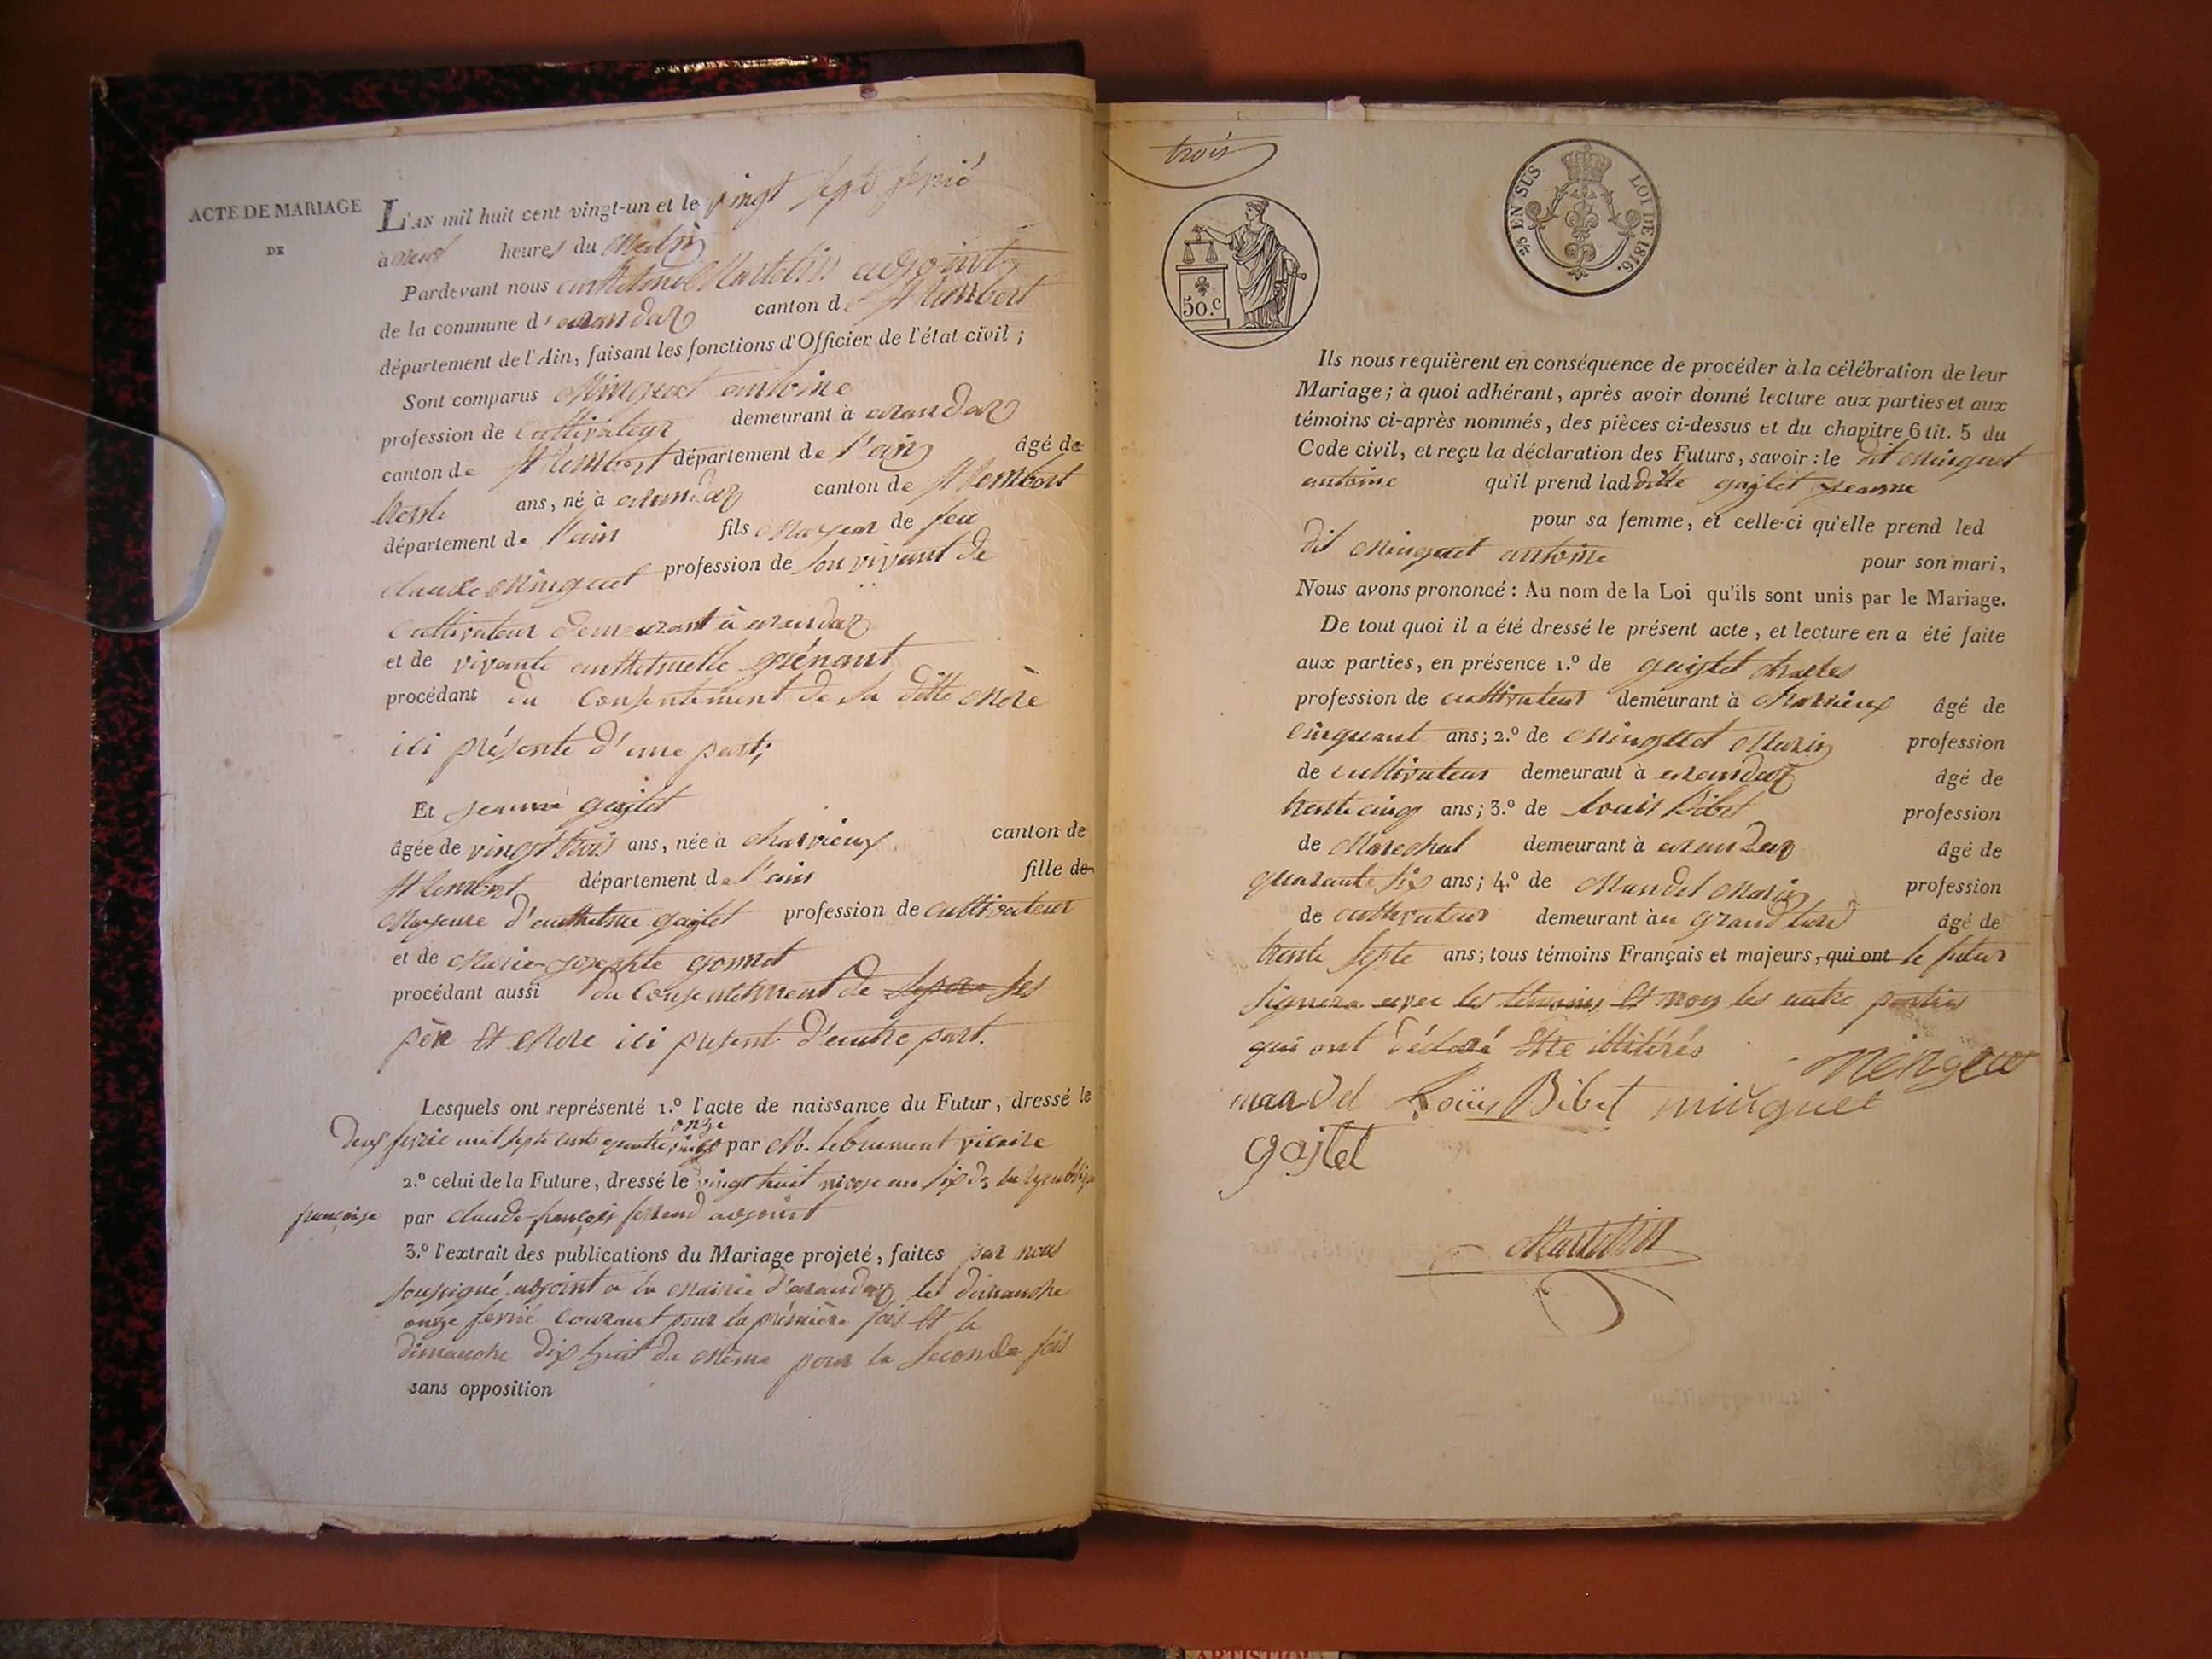 ACTE DE MARIAGE
DE
L'AN mil huit cent vingt-un et le vingt sept fevrié
à neuf heures du matin
Pardevant nous anthelme Martelin adjoint
de la commune d'arandaz canton de St Rembert
département de l'Ain, faisant les fonctions d'Officier de l'état civil ;
Sont comparus Minguet antoine
profession de cultivateur demeurant à arandaz
canton de St Rembert département de l'ain âgé de
trente ans, né à arandaz canton de St Rembert
département de l'ain fils majeur de feu
claude Minguet profession de son vivant de
cultivateur demeurant à arandaz
et de vivante anthelmette guénant
procédant du consentement de sa ditte mère
ici présente d'une part;
Et jeanne gajlet
âgée de vingt trois ans, née à charvieux canton de
St Rembert département de l'ain fille de
majeure d'anthelme gajlet profession de cultivateur
et de marie josephte gonnet
procédant aussi du consentement de ses
père et mère ici présent d'autre part.
Lesquels ont représenté 1.º l'acte de naissance du Futur, dressé le
onze
deux fevrié mil septe cents quatre vingt par M. lebrument vicaire
2.º celui de la Future, dressé le vingt huit nivose an six de la republique
françoise par claude françois ferrand adjoint
3.º l'extrait des publications du Mariage projeté, faites par nous
soussigné adjoint a la mairie d'arandaz les dimanche
onze fevrié courant pour la première fois et le
dimanche dix huit du même pour la seconde fois
sans opposition
trois
50.c
EN SUS
LOI DE 1816.
Ils nous requièrent en conséquence de procéder à la célébration de leur
Mariage ; à quoi adhérant, après avoir donné lecture aux parties et aux
témoins ci-après nommés, des pièces ci-dessus et du chapitre 6 tit. 5 du
Code civil, et reçu la déclaration des Futurs, savoir : le dit Minguet
antoine qu'il prend lad ditte gajlet jeanne
pour sa femme, et celle-ci qu'elle prend led
dit Minguet antoine pour son mari,
Nous avons prononcé : Au nom de la Loi qu'ils sont unis par le Mariage.
De tout quoi il a été dressé le présent acte, et lecture en a été faite
aux parties, en présence 1.º de gajlet charles
profession de cultivateur demeurant à charvieux âgé de
cinquant ans ; 2.º de Minguet Marin profession
de cultivateur demeuraut à arandaz âgé de
trente cinq ans ; 3.º de Louis Bibet profession
de Marechal demeurant à arandaz âgé de
quarante six ans ; 4.º de Mandel Marin profession
de cultivateur demeurant àu grand âgé de
trente septe ans ; tous témoins Français et majeurs, qui ont le futur
signera avec les témoins et non les autre parties
qui ont déclaré etre illitérés
Minguet
mandel Louis Bibet minguet
gajlet
Martelin
ARTISTION